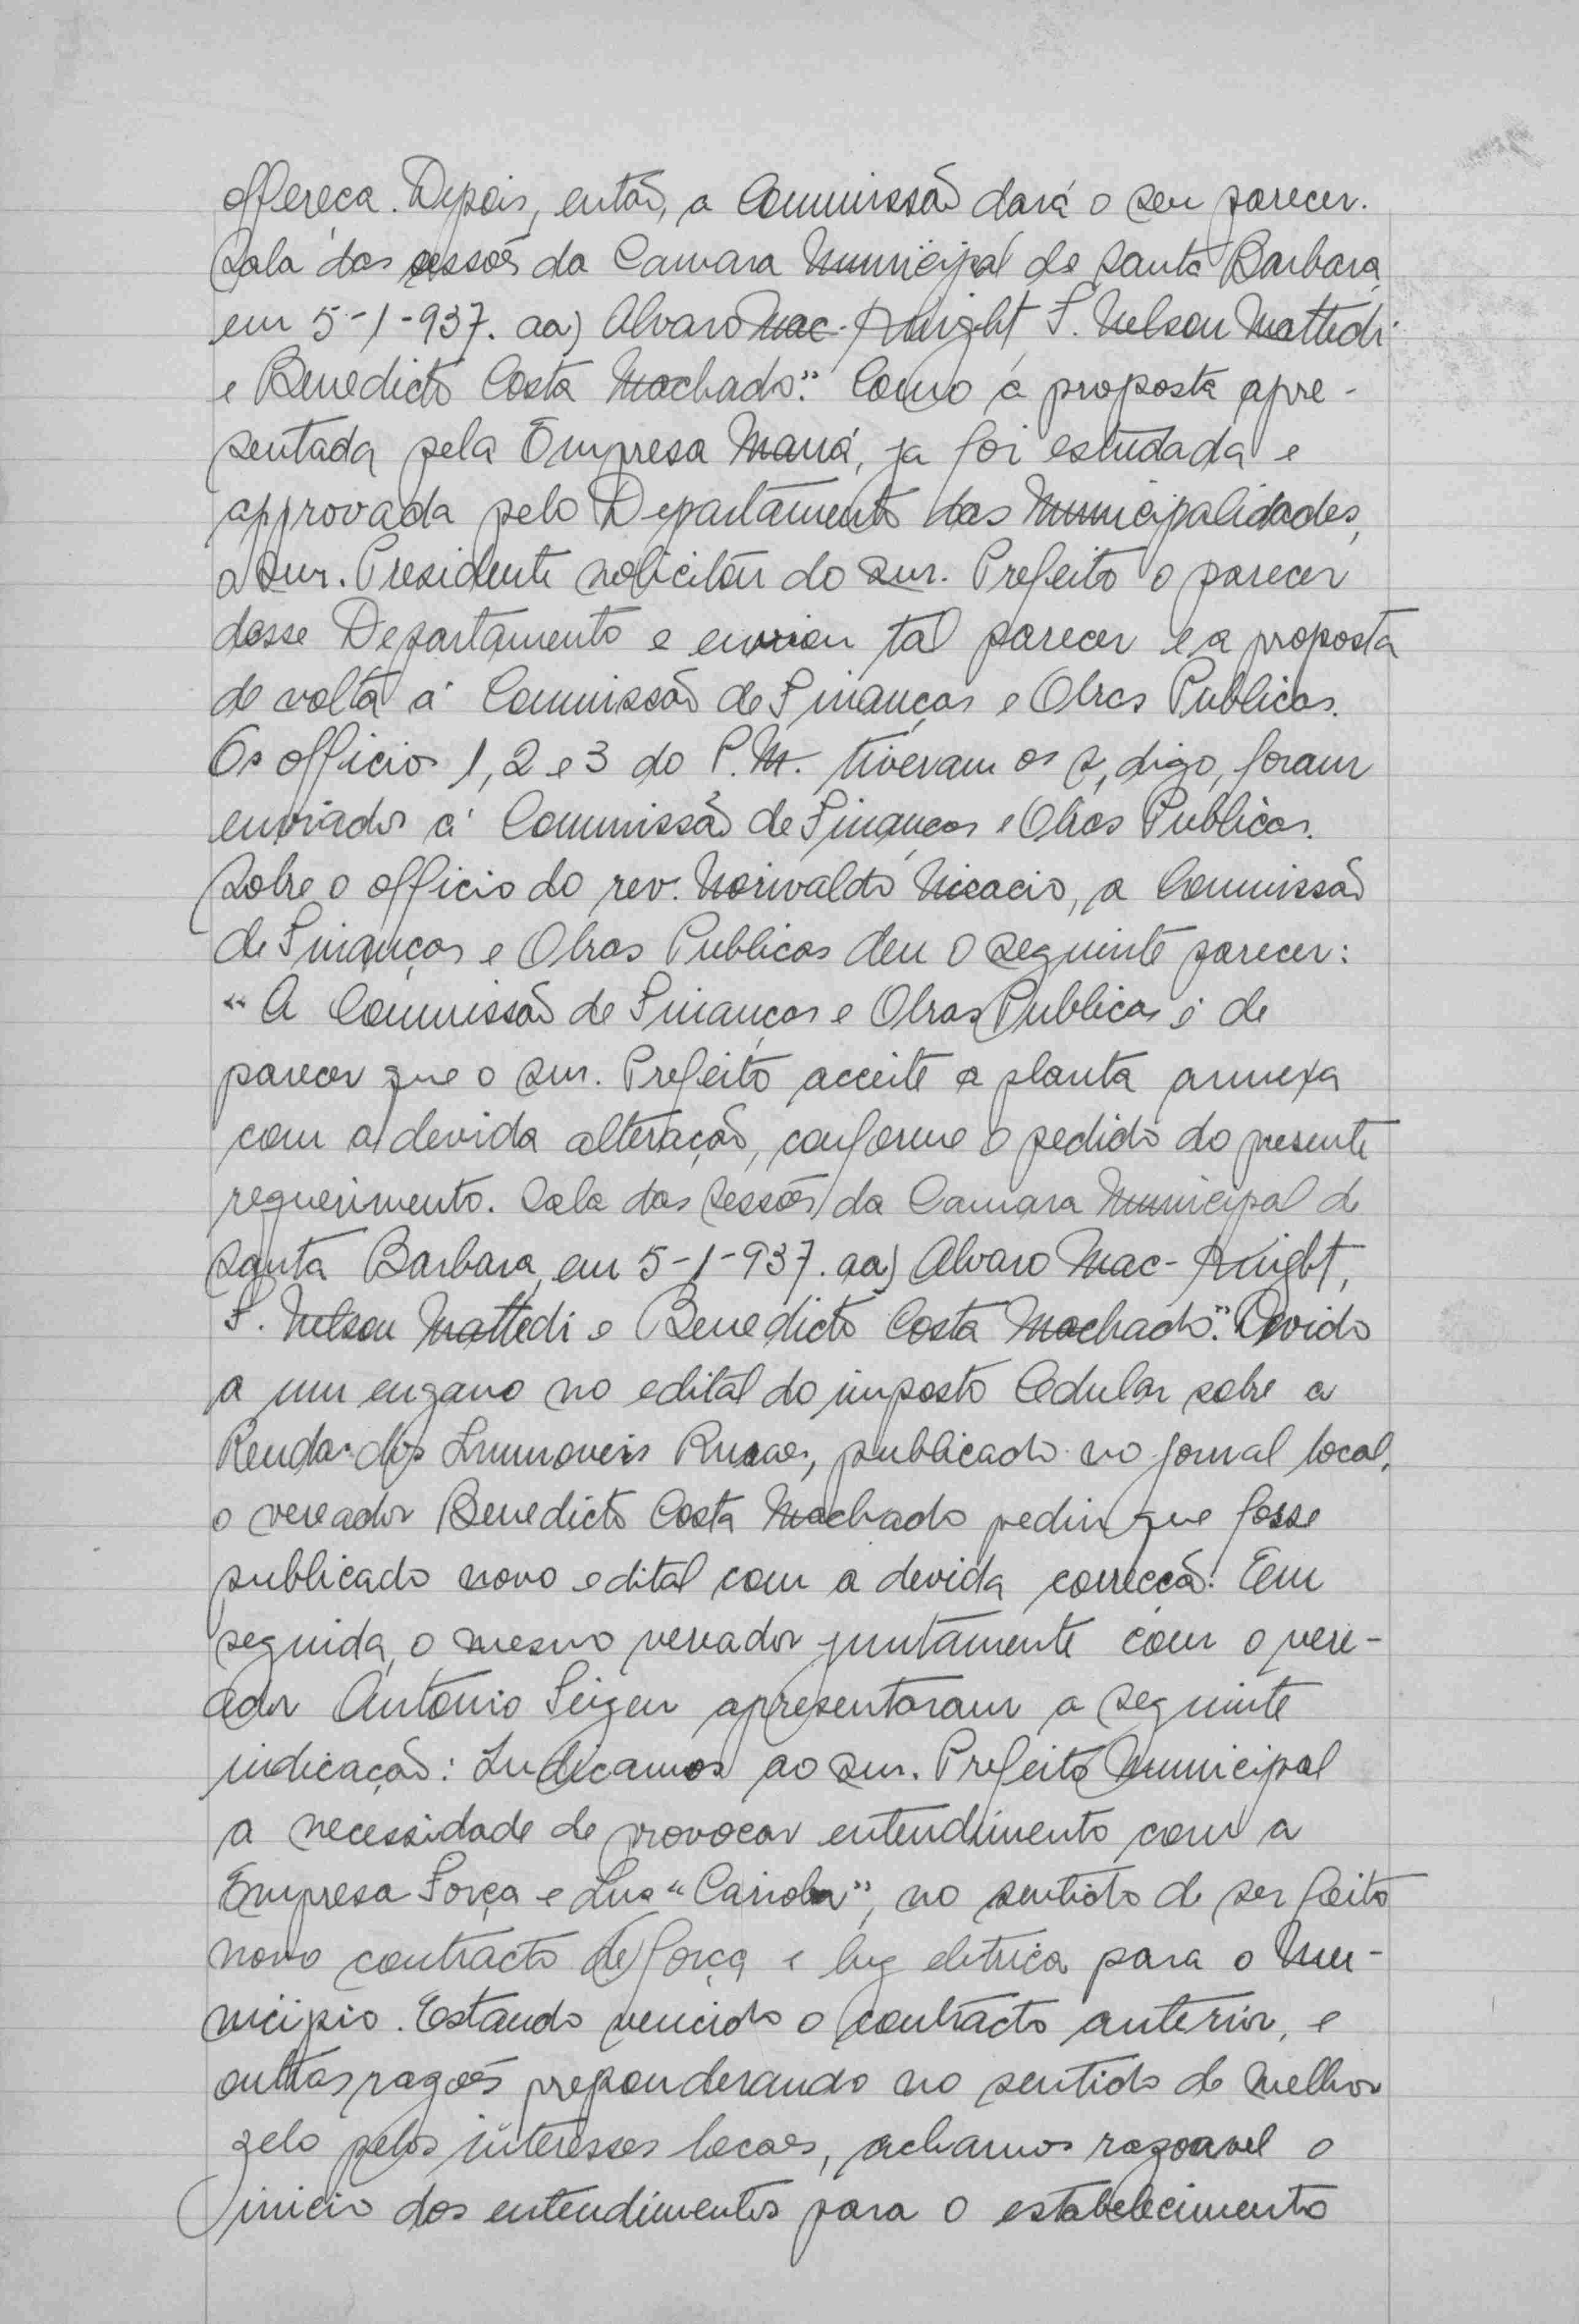 offereça. Depois, então, a Commissão dará o seu parecer.
Sala das sessões da Camara Municipal de Santa Barbara,
em 5-1-937. aa) Alvaro Mac-Knight F. Nelson Mattedi
e Benedicto Costa Machado." Como a proposta apre-
sentada pela Empresa Mauá, ja foi estudada e
approvada pelo Departamento das Municipalidades,
o snr. Presidente solicitou do snr. Prefeito o parecer
desse Departamento e enviou tal parecer e a proposta
de volta á Commissão de Finanças e Obras Publicas.
Os officios 1, 2 e 3 do P.M. tiveram os s, digo, foram
enviados á Commissão de Finanças e Obras Publicas.
Sobre o officio do rev. Norivaldo Nicacio, a Commissão
de Finanças e Obras Publicas deu o seguinte parecer:
"A Commissão de Finanças e Obras Publicas é de
parecer que o snr. Prefeito acceite a planta annexa
com a devida alteração, conforme o pedido do presente
requerimento. Sala das sessões da Camara Municipal de
Santa Barbara, em 5-1-937. aa) Alvaro Mac-Knight,
F. Nelson Mattedi e Benedicto Costa Machado." Devido
a um engano no edital do imposto Cedular sobre a
Renda dos Immoveis Ruraes, publicado no jornal local,
o vereador Benedicto Costa Machado pediu que fosse
publicado novo edital com a devida correcção. Em
seguida, o mesmo vereador juntamente com o vere-
ador Antonio apresentaram a seguinte
indicação: Indicamos ao snr. Prefeito Municipal
a necessidade de provocar entendimento com a
Empresa Força e Luz "Carioba", no sentido de ser feito
novo contracto de força e luz eletrica para o Mu-
nicipio. Estando vencido o contracto anterior, e
outras razões preponderando no sentido de melhor
zelo pelos interesses locaes, achamos razoavel o
inicio dos entendimentos para o estabelecimento